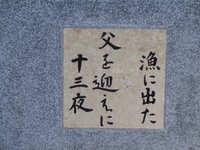 漁に出た
父を迎えに
十三夜